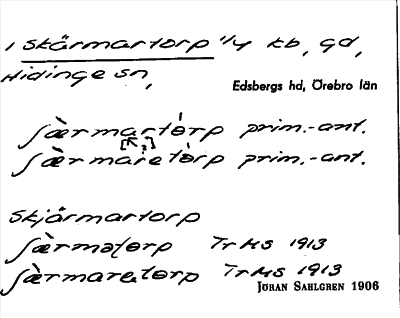 1 Skärmartorp 1/4 kb, gd,
Hidinge sn,
Edsbergs hd, Örebro län
ʃὰrmartórp prim.-ant.
[R ?]
ʃæ̀rmaretòrp prim.-ant.
Skjärmartorp
ʃæ̀rmaʈorp TrHS 1913
ʃæ̀rmareʈorp TrHS 1913
JÖRAN SAHLGREN 1906